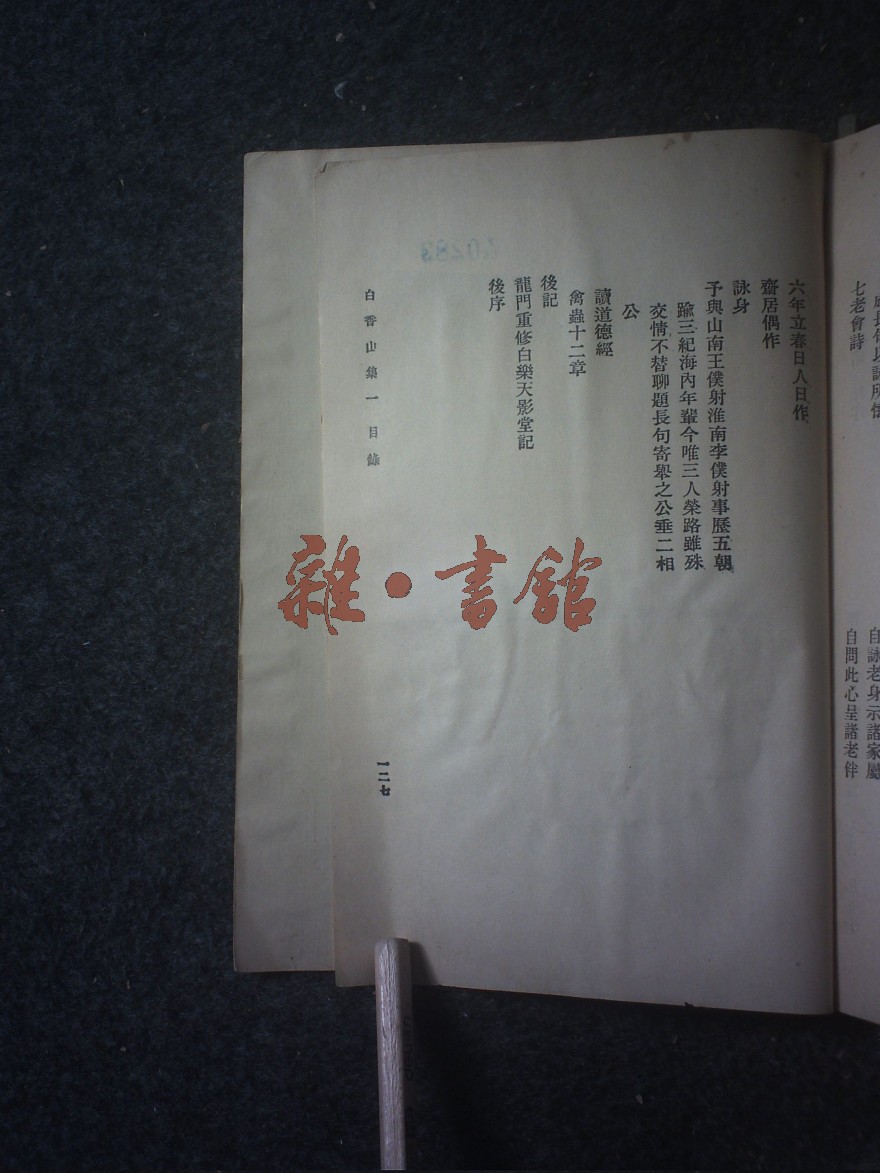 自詠老身示諸家屬
七老會詩
自問此心呈諸老伴
六年立春日人日作
齋居偶作
詠身
予與山南王僕射淮南李僕射事歷五朝
踰三紀海內年輩今唯三人榮路雖殊
交情不替聊題長句寄舉之公垂二相
公
讀道德經
禽蟲十二章
後記
龍門重修白樂天影堂記
後序
白香山集一目錄
一二七
雜·書館